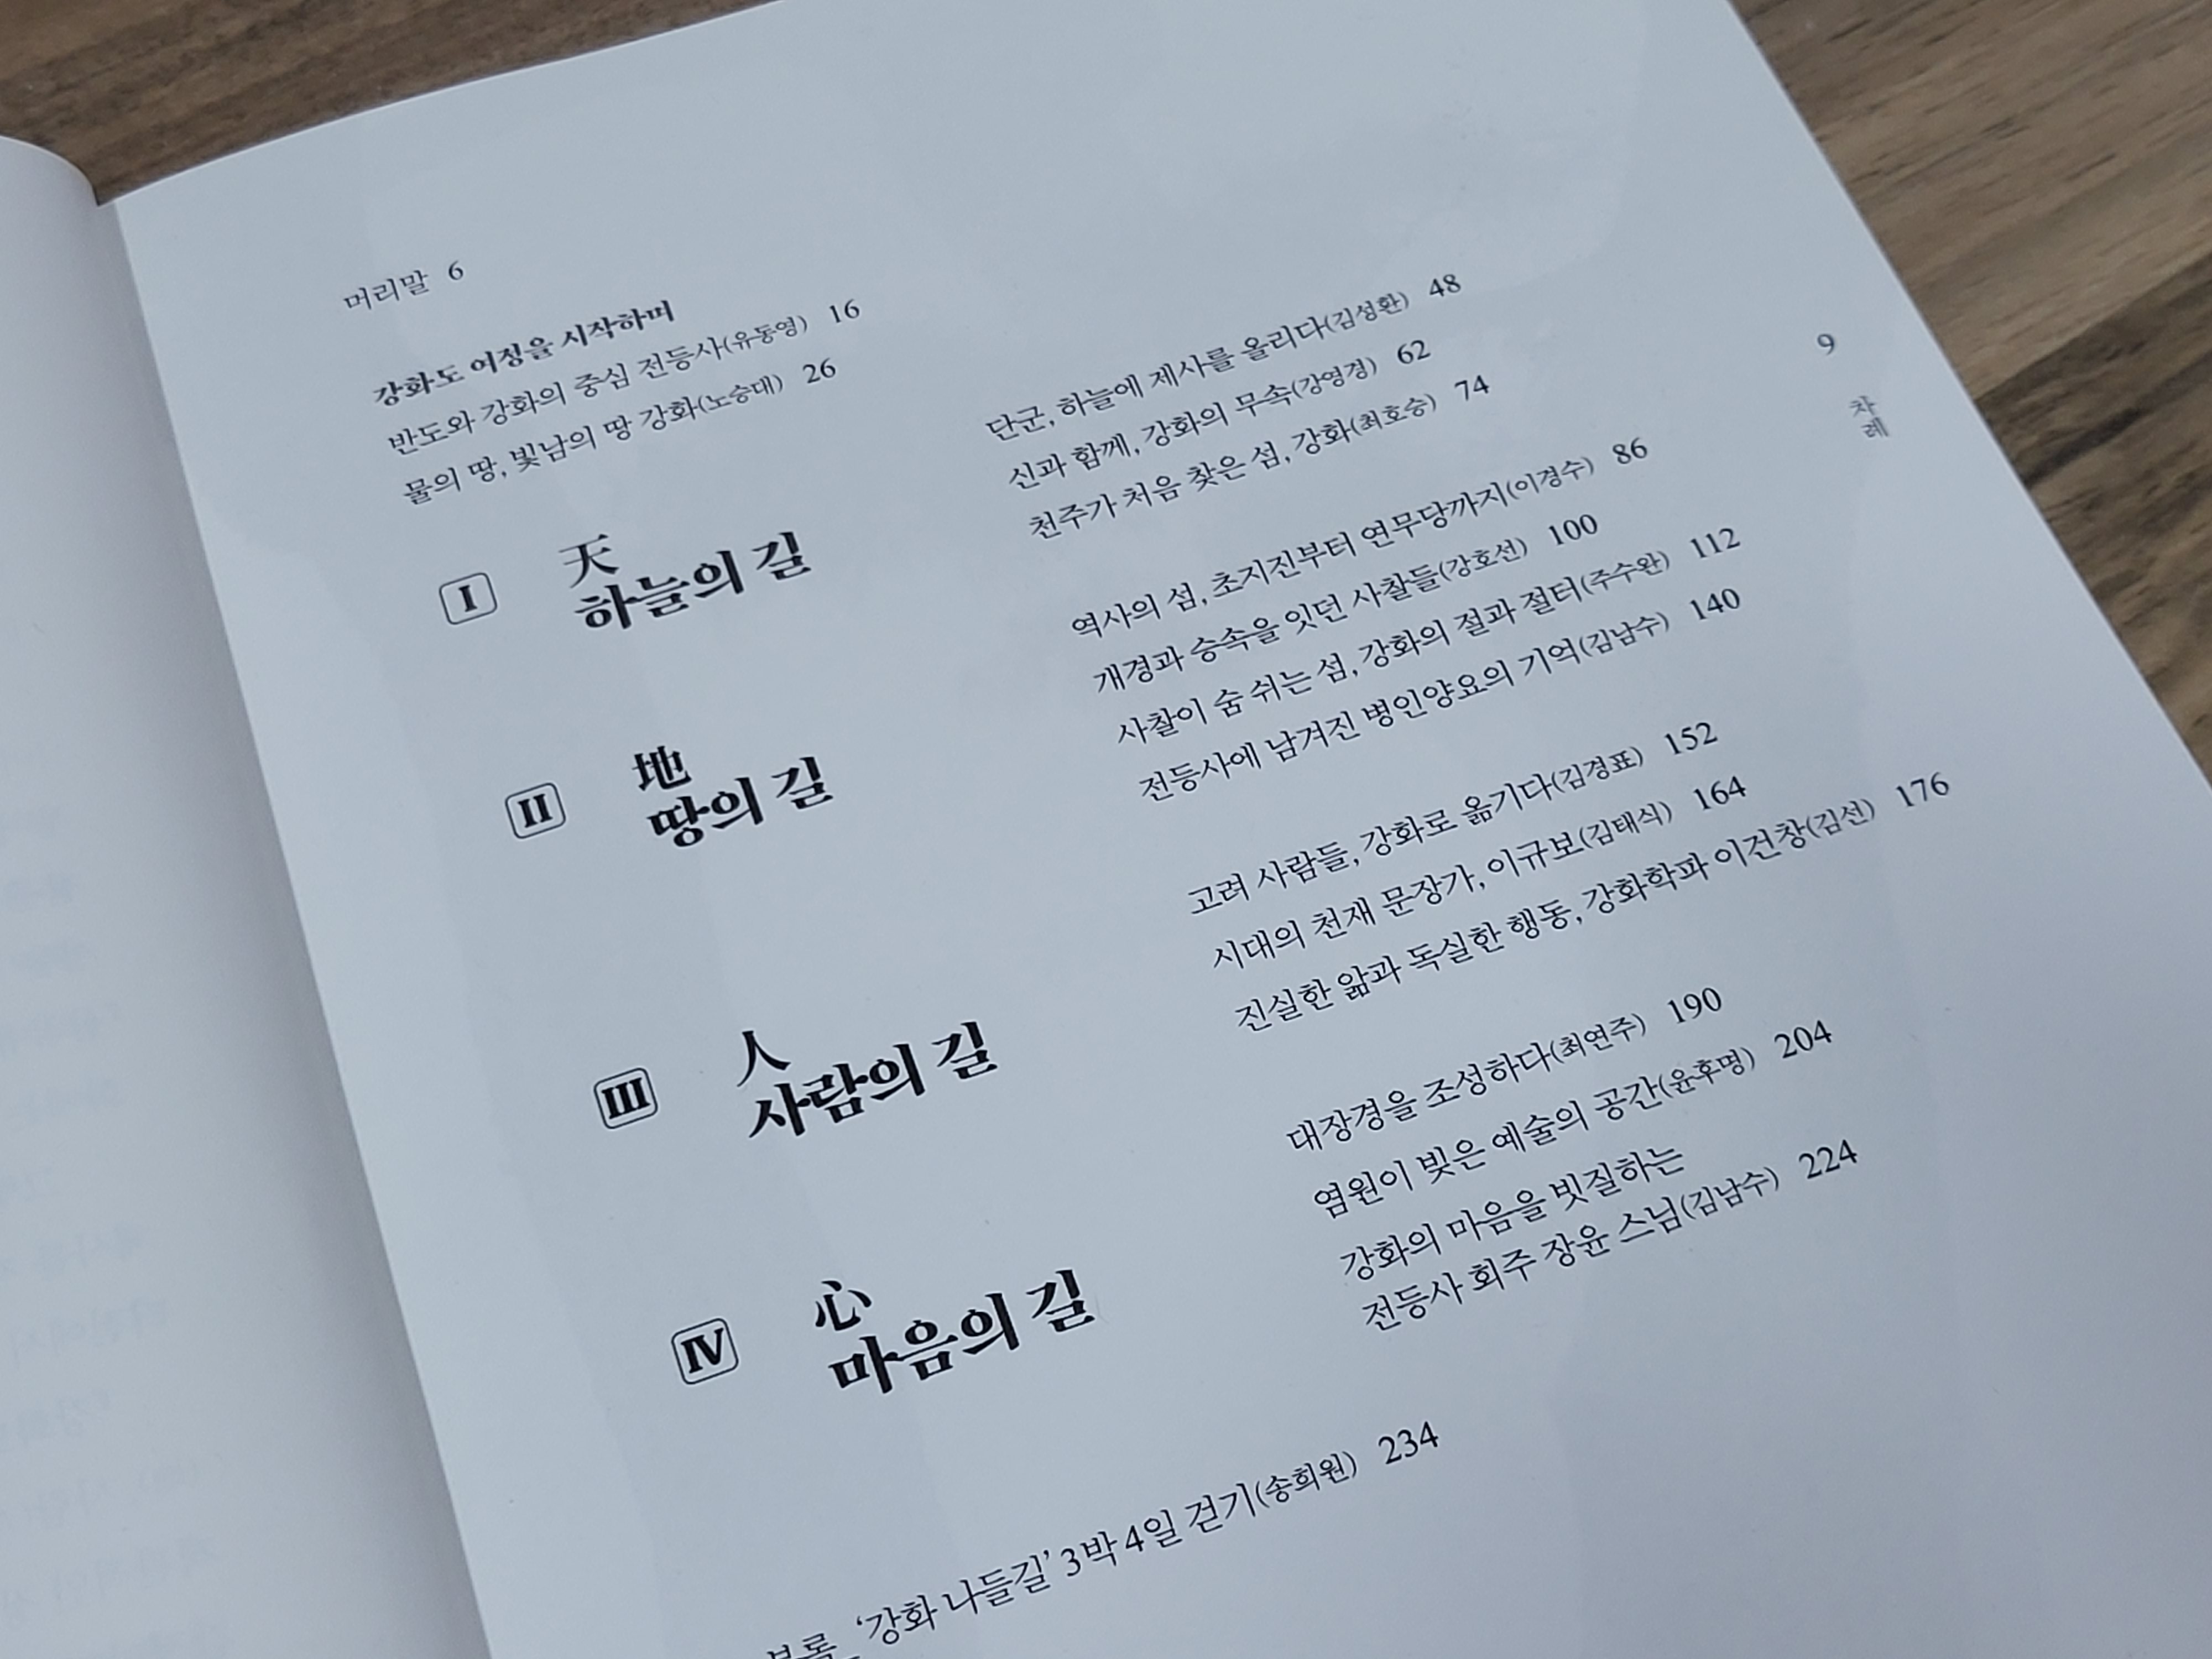 머리말 6
강화도 여정을 시작하며
반도와 강화의 중심 전등사(유동영) 16
물의 땅, 빛남의 땅 강화(노승대) 26
I
天
하늘의 길
단군, 하늘에 제사를 올리다(김성환) 48
신과 함께, 강화의 무속(강영경) 62
천주가 처음 찾은 섬, 강화(최호승) 74
II
地
땅의 길
역사의 섬, 초지진부터 연무당까지(이경수) 86
개경과 승속을 잇던 사찰들(강호선) 100
사찰이 숨 쉬는 섬, 강화의 절과 절터(주수완) 112
전등사에 남겨진 병인양요의 기억(김남수) 140
III
人
사람의 길
고려 사람들, 강화로 옮기다(김경표) 152
시대의 천재 문장가, 이규보(김태식) 164
진실한 앎과 독실한 행동, 강화학파 이건창(김선) 176
IV
心
마음의 길
대장경을 조성하다(최연주) 190
염원이 빚은 예술의 공간(윤후명) 204
강화의 마음을 빗질하는
전등사 회주 장윤 스님(김남수) 224
부록_ ‘강화 나들길’ 3박 4일 걷기(송희원) 234
9
차례